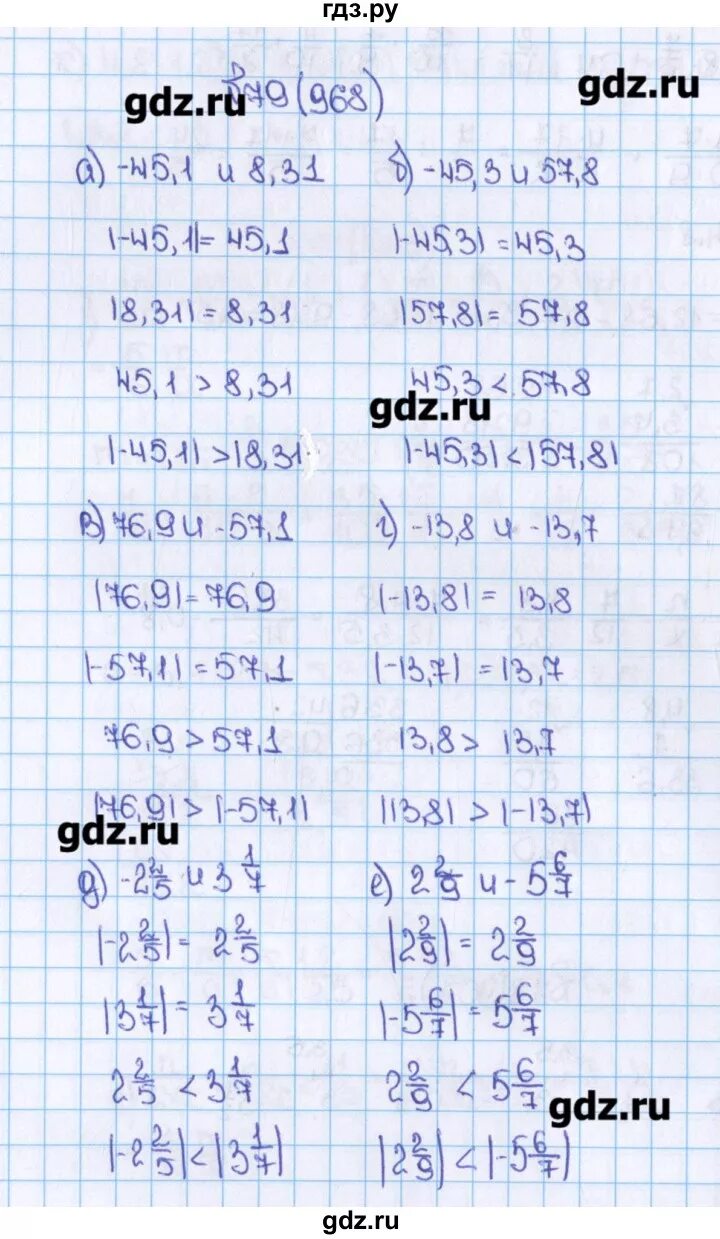 гдз.ру
gdz.ru
gdz.ru
79 (968)
а) -45,1 и 8,31
|-45,1|= 45,1
|8,31| = 8,31
45,1 > 8,31
|-45,1| >|8,31
б) -45,3 и 57,8
|-45,3| = 45,3
|57,8| = 57,8
45,3 < 57,8
gdz.ru
|-45,3| < |57,8|
в) 76,9 и -57,1
|76,9| = 76,9
|-57,1| = 57,1
76,9 > 57,1
|76,9| > |-57,1|
gdz.ru
г) -13,8 и -13,7
|-13,8| = 13,8
|-13,7| = 13,7
13,8 > 13,7
|13,8| > |-13,7|
д) -2 2/5 и 3 1/7
|-2 2/5| = 2 2/5
|3 1/7| = 3 1/7
2 2/5 < 3 1/7
|-2 2/5| < |3 1/7|
е) 2 2/9 и -5 6/7
|2 2/9| = 2 2/9
|-5 6/7| = 5 6/7
2 2/9 < 5 6/7
gdz.ru
|2 2/9| < |-5 6/7|
gdz.ru